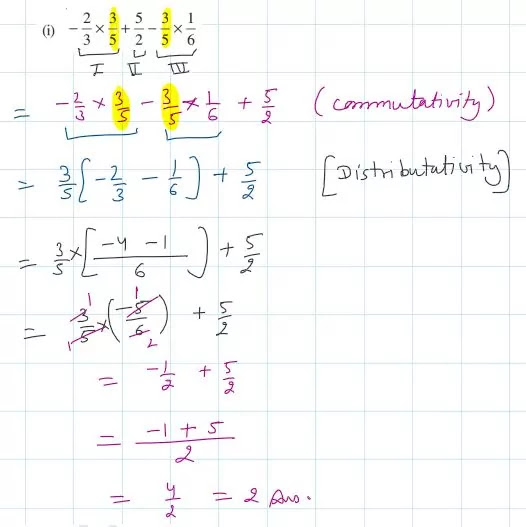 (i) -2/3 × 3/5 + 5/2 - 3/5 × 1/6
I II III
= -2/3 × 3/5 - 3/5 × 1/6 + 5/2 (Commutativity)
= 3/5 [-2/3 - 1/6] + 5/2 [Distributativity]
= 3/5 × [(-4 - 1)/6] + 5/2
= 3/5 × (-5/6) + 5/2
1 1 1 2
= -1/2 + 5/2
= (-1 + 5)/2
= 4/2 = 2 Ans.